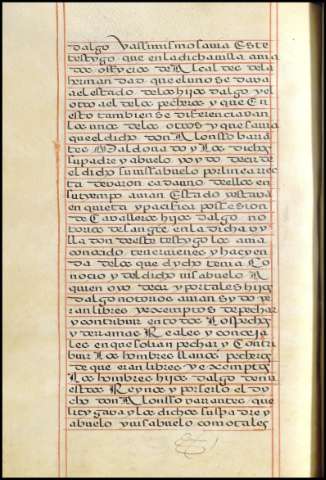 dalgo y assimismo savia Este
testygo que en la dicha villa avia
dos offycios de Alcaldes dela
hermandad que el uno se dava
a el estado delos hijos dalgo y el
otro a el delos pecheros y que En
esto tambien se diferenciavan
los unos delos otros y que savia
que el dicho don Alonsso barra
tes Maldonado y Los dichos
su padre y abuelo y oydo decir de
el dicho su uisabuelo por linea rrec
ta de varon cada uno dellos en
su tiempo avian Estado y estavan
en quieta y pacifica possesion
de Cavalleros hijos dalgo no
torios de sangre en la dicha vy
lla donde este testygo los avia
conocido tener vienes y hacyen
da delos que dycho tenia Ko
nocio y del dicho uisabuelo A
quien oyo decir y por tales hijos
dalgo notorios avian sydo y e
ran libres y exemptos de pechar
y contribuir en todos Los pechos
y derramas Reales y conceja
les en que solian pechar y Contri
buir Los hombres llanos pecheros
de que eran libres y exemptos
Los hombres hijos dalgo de
estos Reynos y por serlo el dy
cho don Alonsso barrantes que
litygava y los dichos su padre y
abuelo y uisabuelo como tales